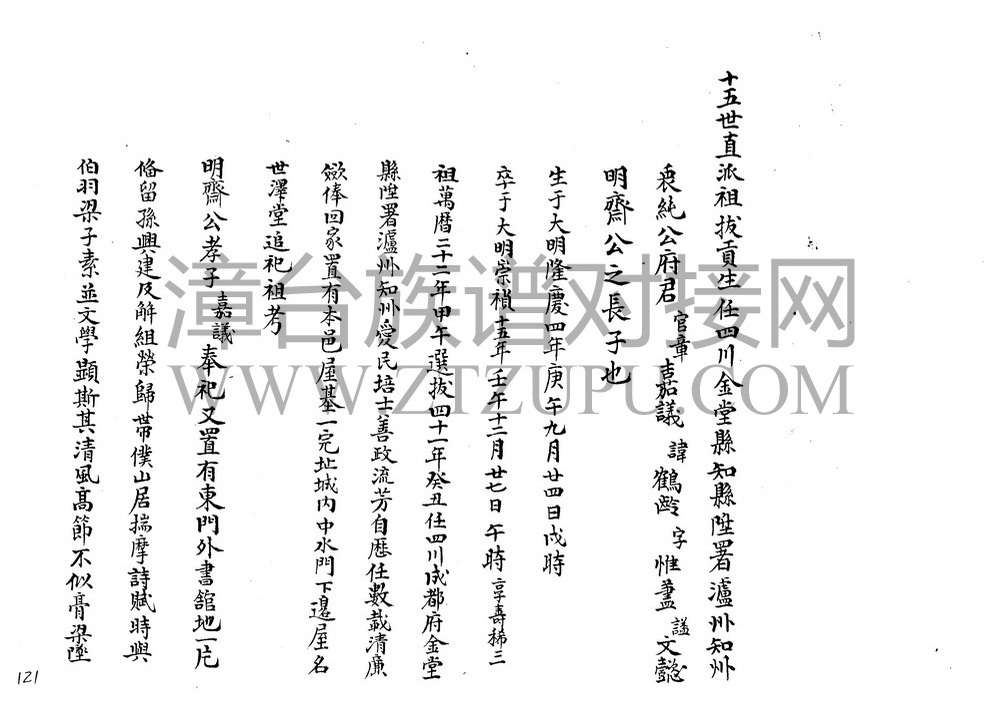 十五世直派祖拔貢生任四川金堂縣知縣陞署瀘州知州
純公府君 官章 嘉議 諱 鶴齡 字 惟藎 謚 文懿
明齋公之長子也
生于大明隆慶四年庚午九月廿四日戌時
卒于大明崇禎十五年壬午十二月廿七日午時 享壽稀三
祖萬曆二十二年甲午選拔四十一年癸丑任四川成都府金堂
縣陞署瀘州知州愛民培士善政流芳自歷任數載清廉
俸回家置有本邑屋基一完址城内中水門下邊屋名
世澤堂追祀祖考
明齋公孝子 嘉議 奉祀又置有東門外書舘地一片
俻留孫興建及解組榮歸帶僕山居揣摩詩賦時與
伯羽梁子素並文學顯斯其清風高節不似膏梁墜
121
漳台族谱对接网
WWW.ZTZUPU.COM